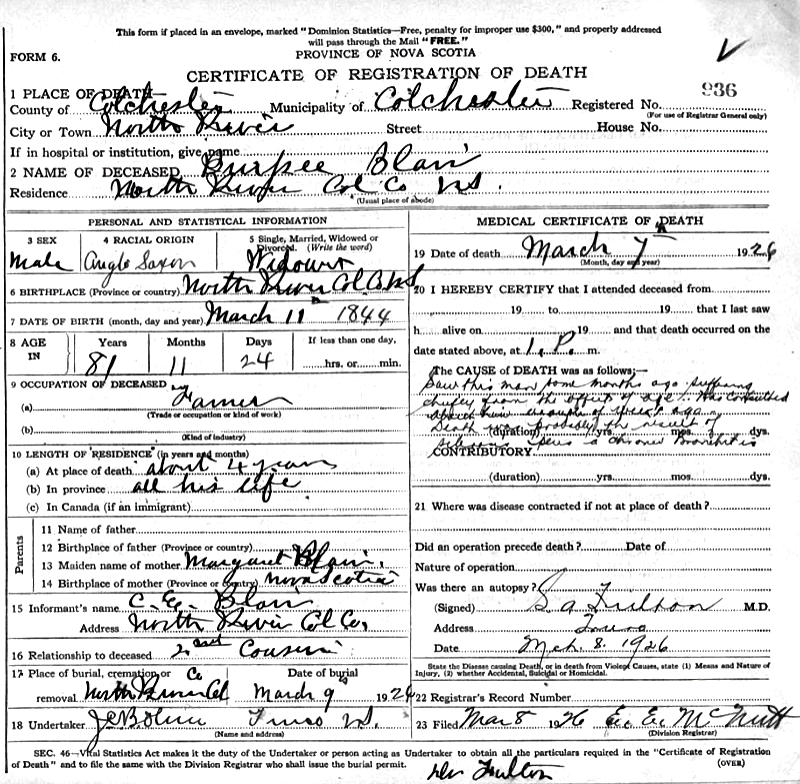 This form if placed in an envelope, marked "Dominion Statistics—Free, penalty for improper use $300," and properly addressed
will pass through the Mail "FREE."
FORM 6.
PROVINCE OF NOVA SCOTIA
CERTIFICATE OF REGISTRATION OF DEATH
936
1 PLACE OF DEATH
County of Colchester Municipality of Colchester Registered No.
(For use of Registrar General only)
City or Town North River Street House No.
If in hospital or institution, give name
2 NAME OF DECEASED Burpee Blair
Residence North River Col Co NS.
(Usual place of abode)
PERSONAL AND STATISTICAL INFORMATION
3 SEX 4 RACIAL ORIGIN 5 Single, Married, Widowed or Divorced. (Write the word)
Male Anglo Saxon Widower
6 BIRTHPLACE (Province or country) North River Col Co NS
7 DATE OF BIRTH (month, day and year) March 11 1844
8 AGE IN Years Months Days If less than one day,
81 11 24 hrs. or min.
9 OCCUPATION OF DECEASED
(a) Farmer
(Trade or occupation or kind of work)
(b)
(Kind of industry)
10 LENGTH OF RESIDENCE (in years and months)
(a) At place of death about 4 years
(b) In province all his life
(c) In Canada (if an immigrant)
Parents
11 Name of father
12 Birthplace of father (Province or country)
13 Maiden name of mother Margaret Blair.
14 Birthplace of mother (Province or country) Nova Scotia
15 Informant's name C. E. Blair
Address North River Col Co,
16 Relationship to deceased 2nd Cousin
17 Place of burial, cremation or removal Date of burial
North River Col Co March 9 1926
18 Undertaker Truro NS.
(Name and address)
MEDICAL CERTIFICATE OF DEATH
19 Date of death March 7 1926
(Month, day and year)
20 I HEREBY CERTIFY that I attended deceased from
19 to 19 that I last saw
h alive on 19 and that death occurred on
date stated above, at 1. P. m.
The CAUSE of DEATH was as follows:—
Saw this man some months ago suffering
chiefly from the effect of age. Was consulted
about him a couple of weeks ago
Death was probably the result of
(duration) yrs. mos. dys.
a chronic Bronchitis
CONTRIBUTORY
(duration) yrs. mos. dys.
21 Where was disease contracted if not at place of death?
Did an operation precede death? Date of
Nature of operation
Was there an autopsy?
(Signed) S A Fulton M.D.
Address Truro
Date Mch. 8. 1926
State the Disease causing Death, or in death from Violent Causes, state (1) Means and Nature of
Injury, (2) whether Accidental, Suicidal or Homicidal.
22 Registrar's Record Number
23 Filed Mar 8 1926 E. E. McNutt
(Division Registrar)
SEC. 46—Vital Statistics Act makes it the duty of the Undertaker or person acting as Undertaker to obtain all the particulars required in the "Certificate of Registration
of Death" and to file the same with the Division Registrar who shall issue the burial permit.
(OVER)
Fulton